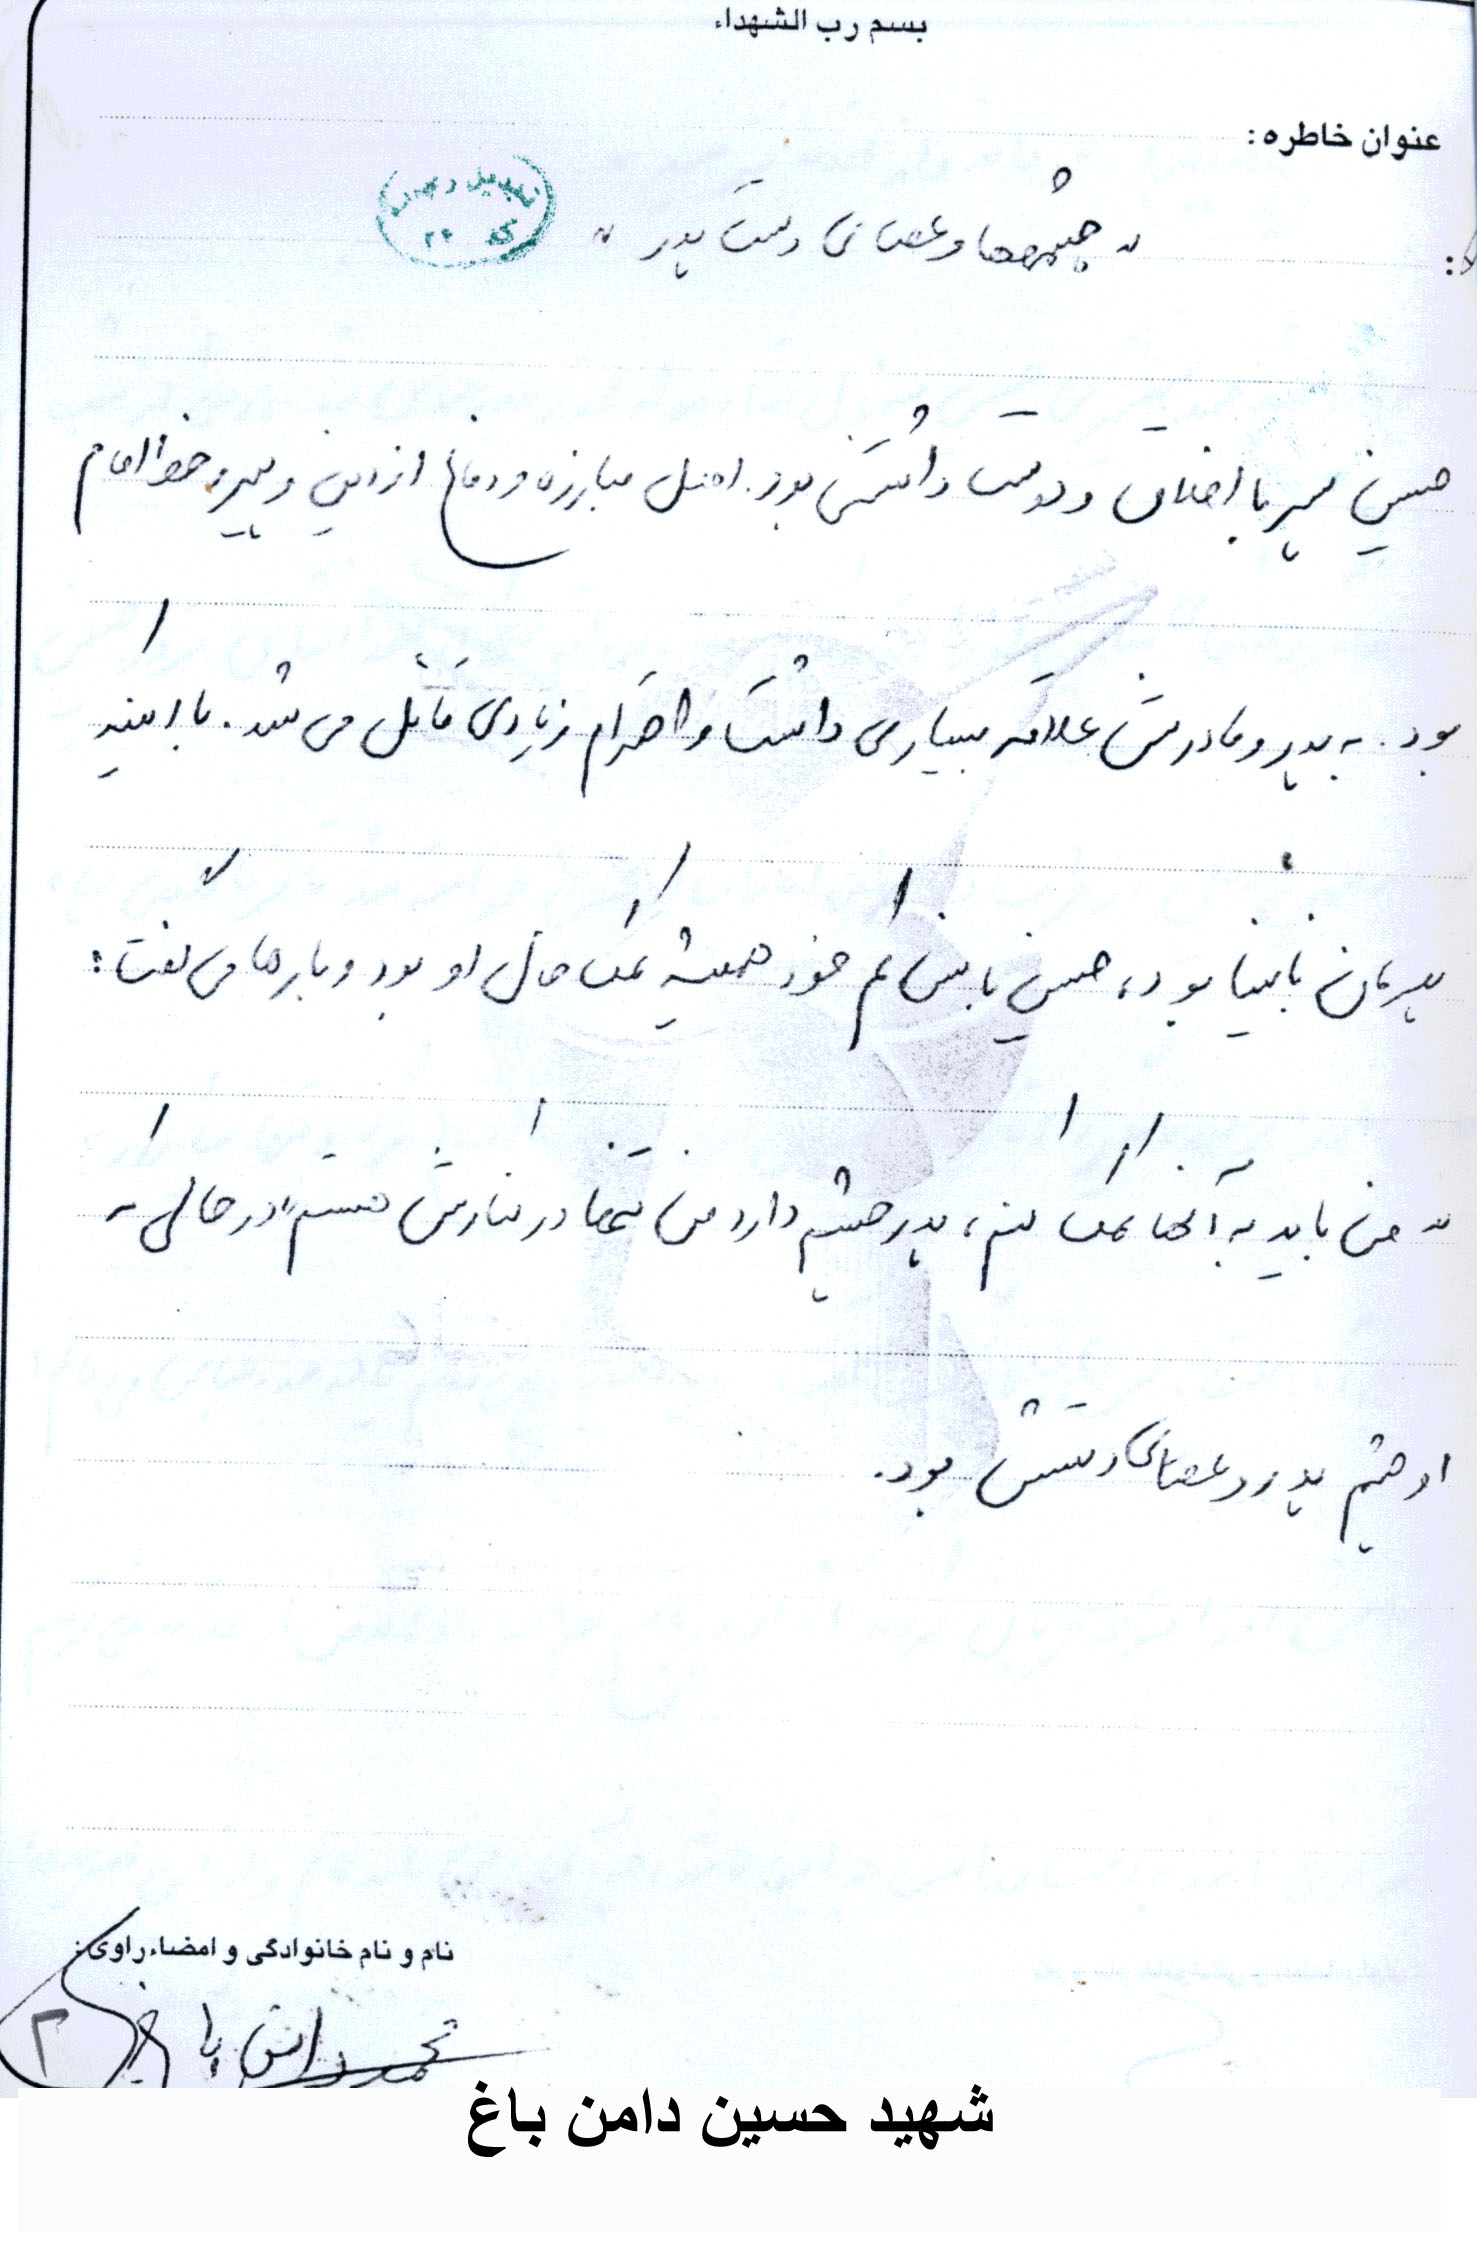 بسم رب الشهداء
عنوان خاطره:
" چشمها و عصای دست پدر "
حسین پسر با اخلاق و دوست داشتنی بود. اهل مبارزه و دفاع از دین و پیرو خط امام
بود. به پدر و مادرش علاقه بسیاری داشت و احترام زیادی قائل می شد. با اینکه
پدرمان نابینا بود، حسین با سن کم خود همیشه کمک حال او بود و بارها می گفت:
" من باید به آنها کمک کنم، پدر چشم ندارد من تنها در کنارش هستم" در حالی که
او چشم پدر و عصای دستش بود.
نام و نام خانوادگی و امضاء راوی:
محمد دامن باغ
۳
شهید حسین دامن باغ